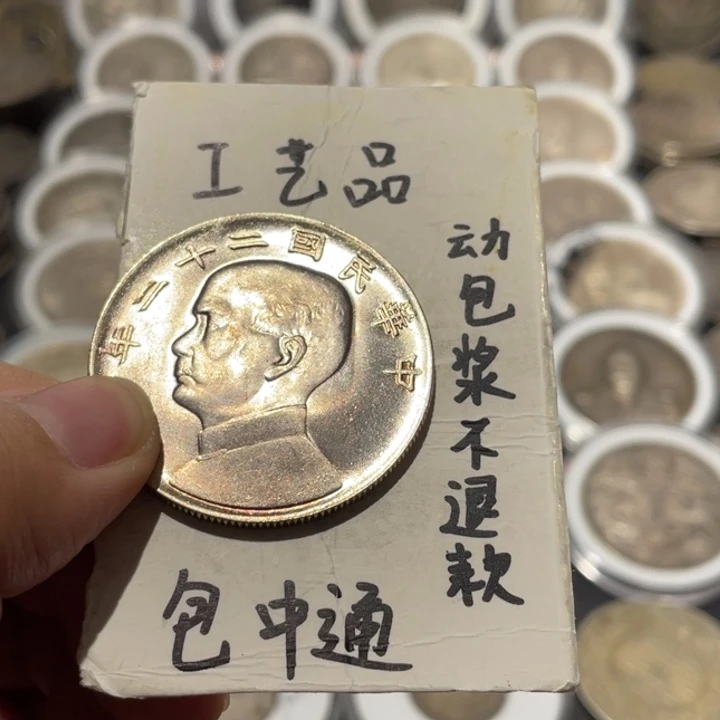 工艺品
动包浆不退款
包中通
中華民國二十二年